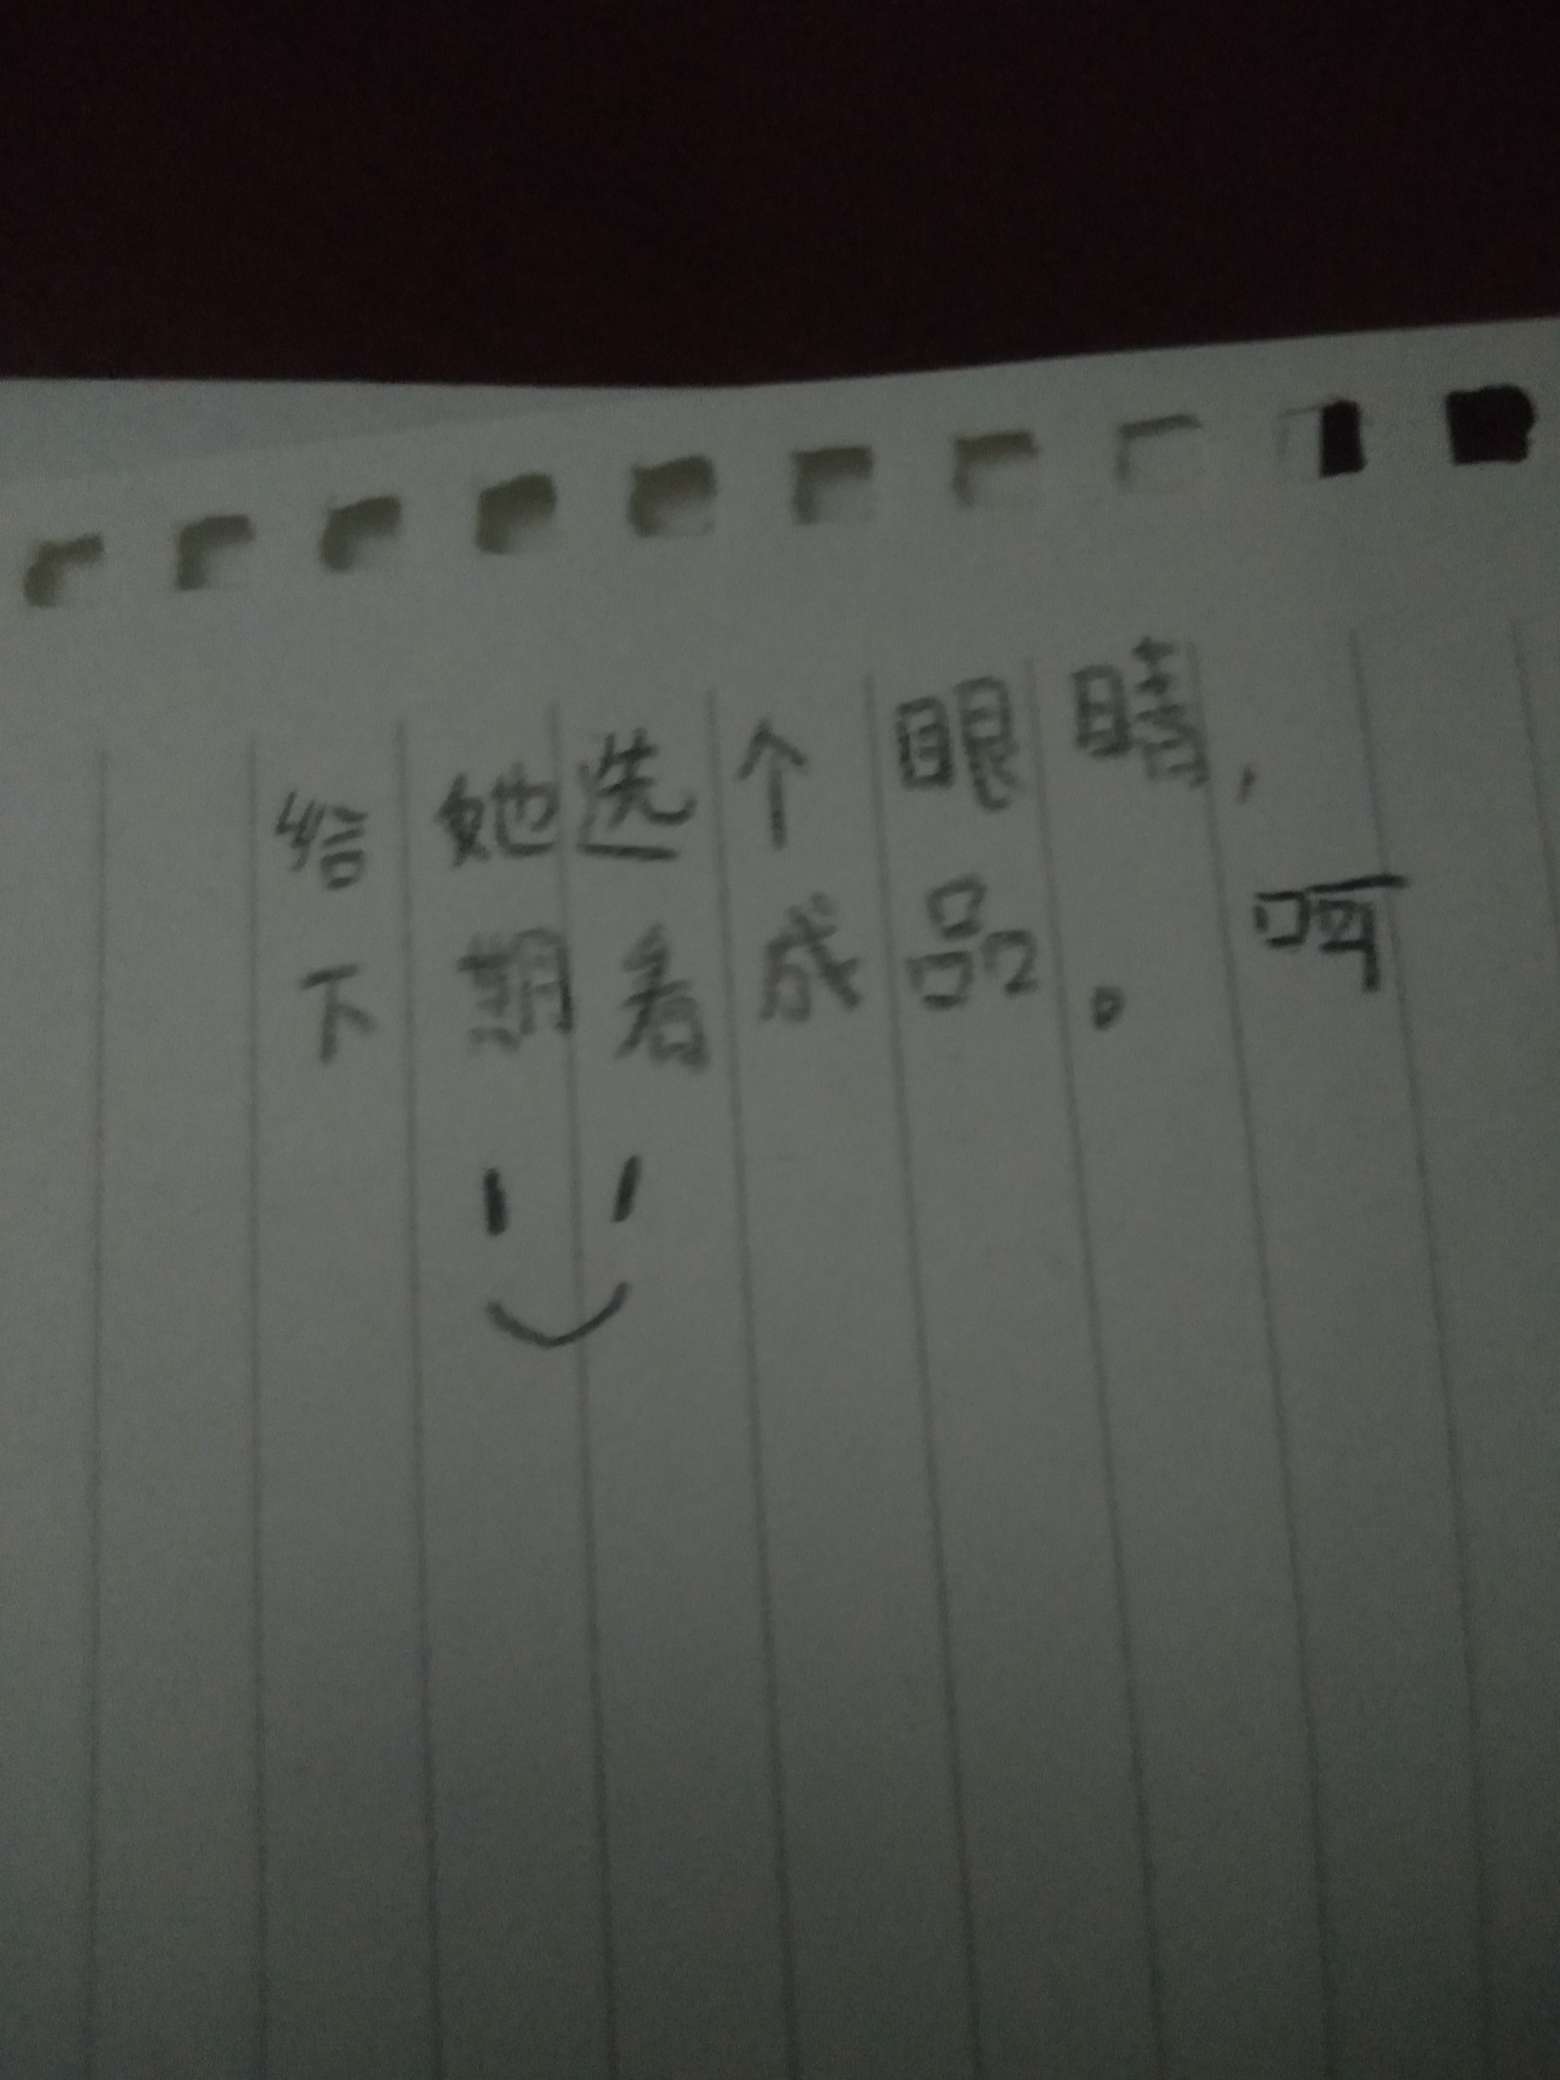 给她选个眼睛,
下期看成品。呵